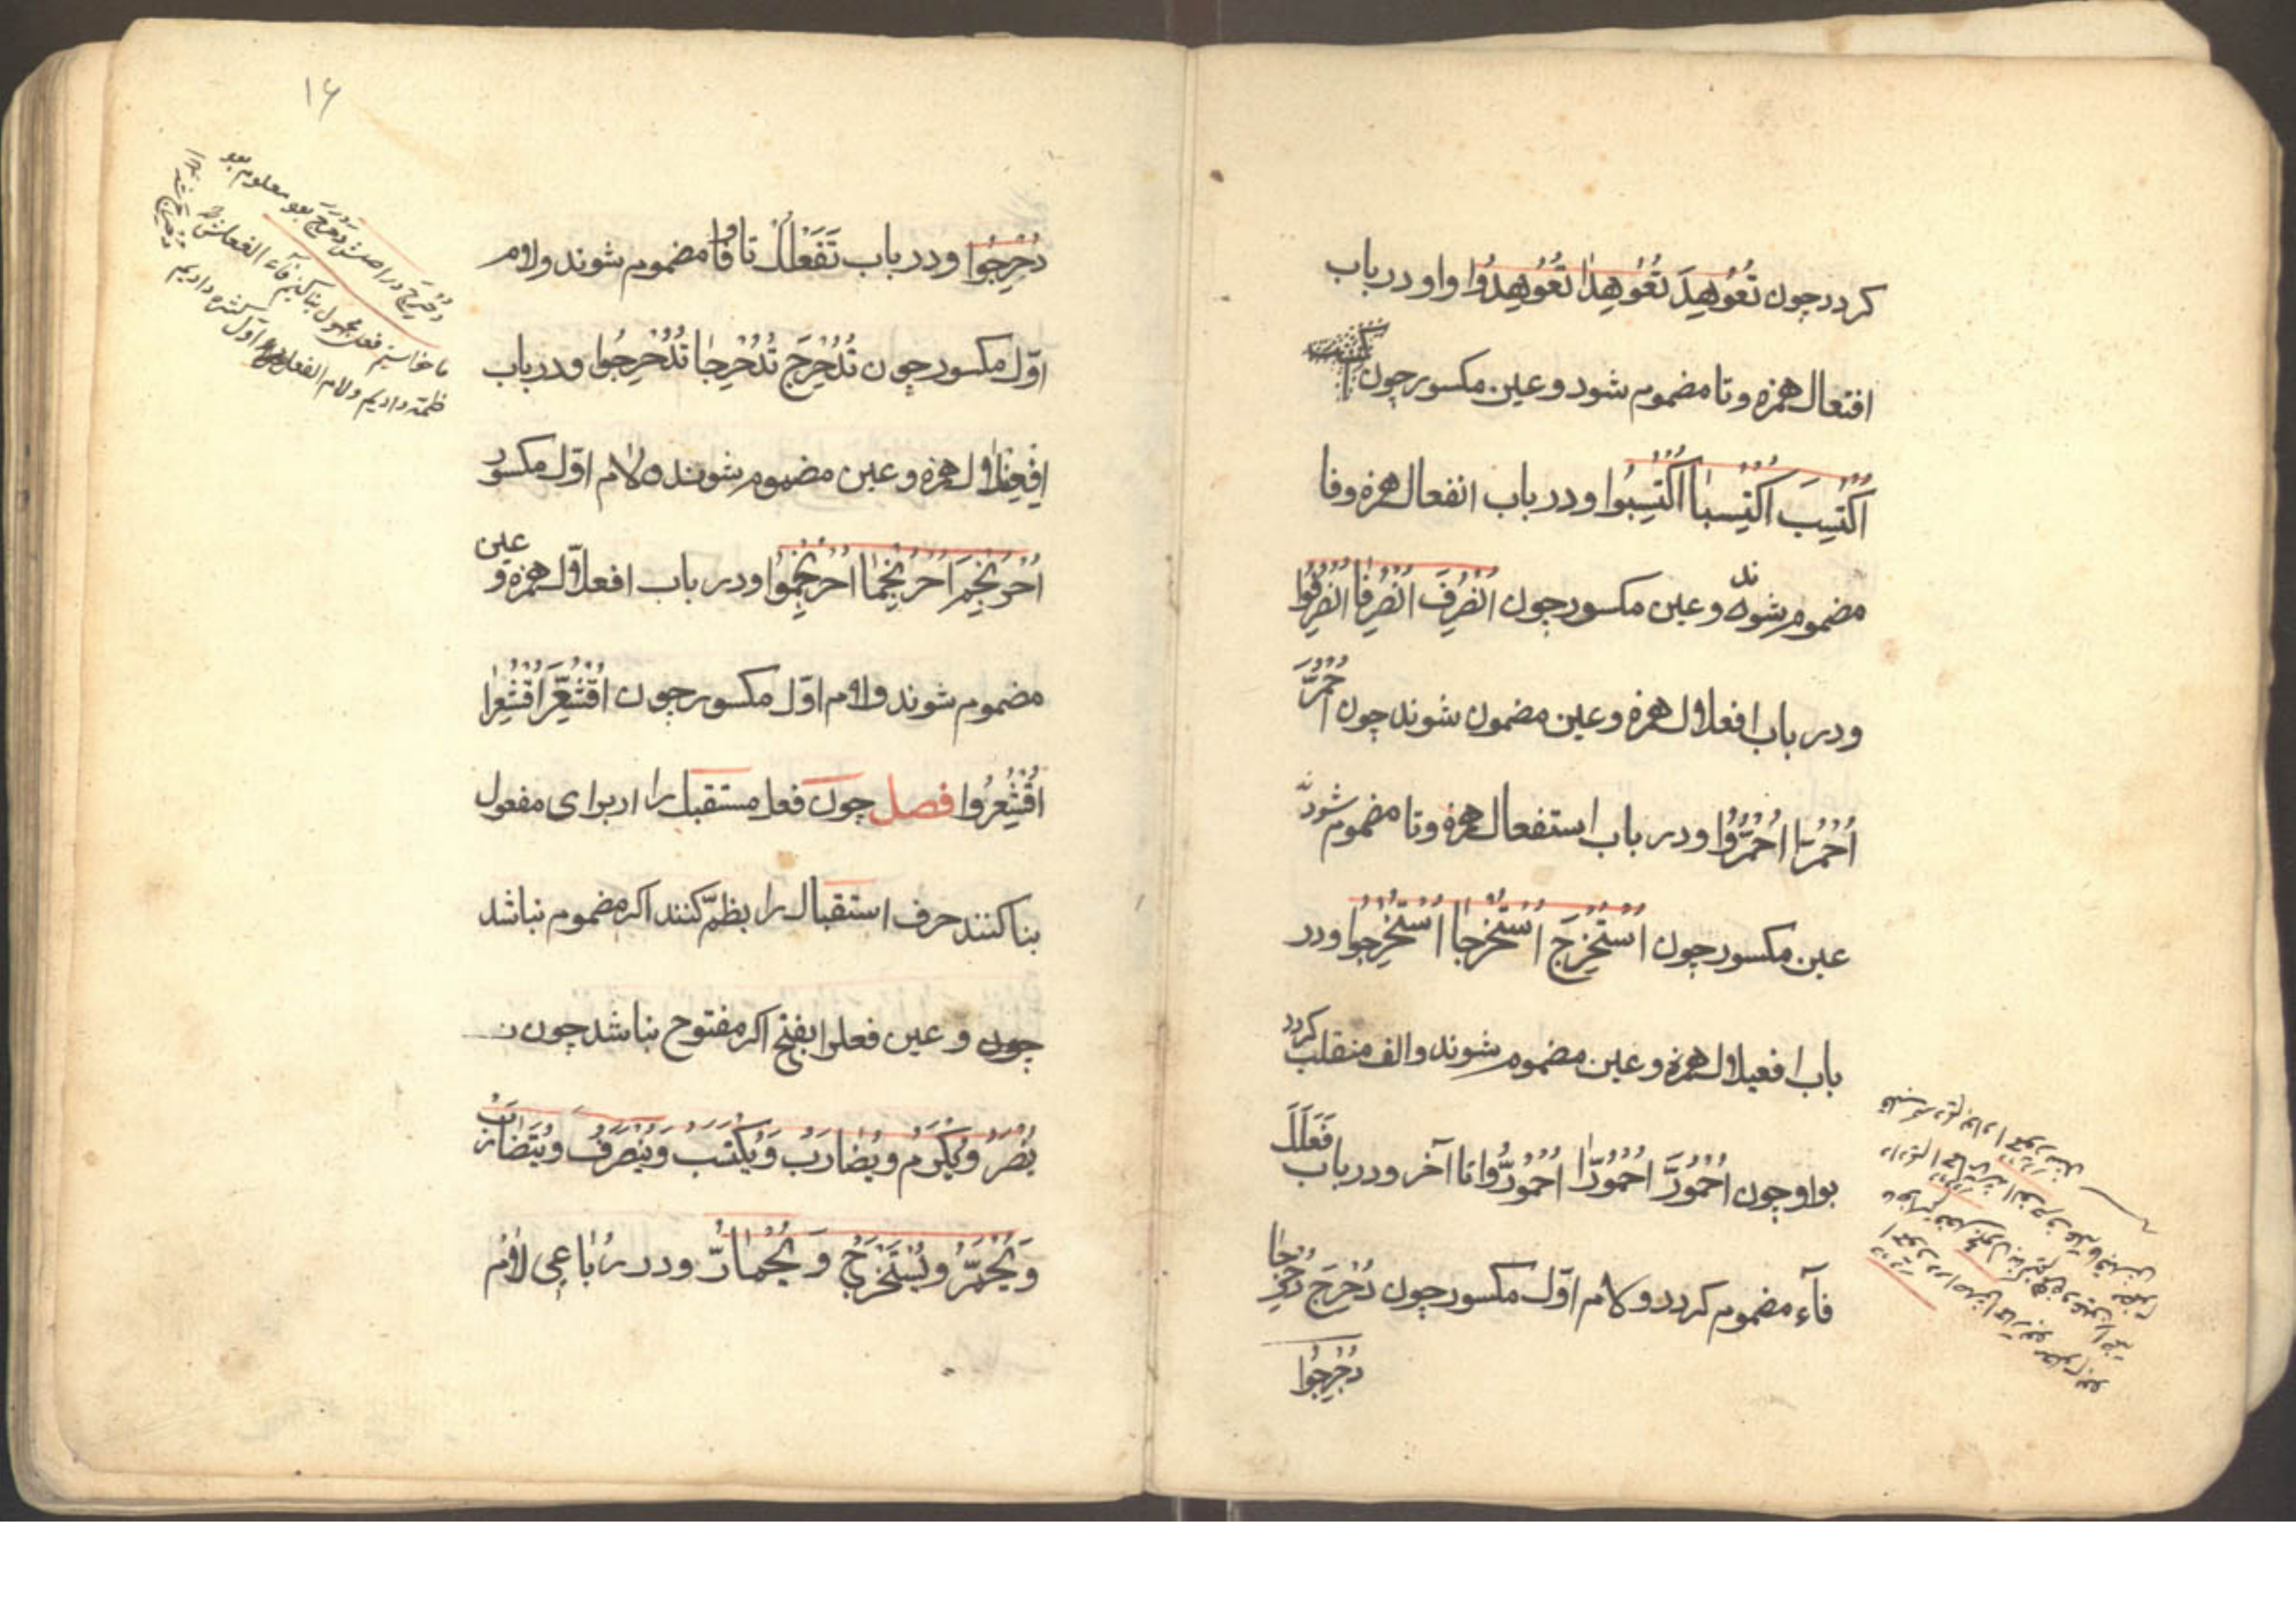 کردد چون تُعُوهِدَ تُعُوهِدٰا تُعُوهِدُوا واو و در باب
افتعال همزه و تا مضموم شود و عین مکسور چون
اُکْتُسِبَ اُکْتُسِبٰا اُکْتُسِبُوا و در باب انفعال همزه و فا
مضموم شوند و عین مکسور چون اُنْصُرِفَ اُنْصُرِفٰا اُنْصُرِفُوا
و در باب افعلال همزه و عین مضمون شوند چون اُحْمُرَّ
اُحْمُرّٰا اُحْمُرُّوا و در باب استفعال همزه و تا مضموم شود
عین مکسور چون اُسْتُخْرِجَ اُسْتُخْرِجٰا اُسْتُخْرِجُوا و در
باب افعیلال همزه و عین مضموم شوند و الف منقلب کردد
بواو چون اُحْمُورَّ اُحْمُورّٰا اُحْمُورُّوا تا آخر و در باب فَعْلَلَ
فآء مضموم کردد و لام اوّل مکسور چون دُحْرِجَ دُحْرِجٰا
دُحْرِجُوا
۱۶
دُحْرِجُوا و در باب تَفَعْلُلْ تا و فا مضموم شوند و لام
اوّل مکسور چون تُدُحْرِجَ تُدُحْرِجٰا تُدُحْرِجُوا و در باب
اِفْعِنْلال همزه و عین مضموم شوند و لام اوّل مکسور
اُحْرُنْجِمَ اُحْرُنْجِمٰا اُحْرُنْجِمُوا و در باب افعلّال همزه و عین
مضموم شوند و لام اوّل مکسور چون اُقْشُعِرَّ اُقْشُعِرّا
اُقْشُعِرُّوا فصل چون فعل مستقبل را از برای مفعول
بنا کنند حرف استقبال را بظمّ کنند اکر مضموم نباشد
چون و عین فعل را بفتح اکر مفتوح نباشد چون
یُنْصَرُ وَیُکْرَمُ و یُضٰارَبُ وَیُکْتَسَبُ وَیُنْصَرَفُ وَیُتَضٰارَبُ
وَیُحْمَرُّ و یُسْتَخْرَجُ وَ یُحْمٰارُّ و در رُبٰاعِی لٰامْ
دُحْرِجَ در اصلش دَحْرَجَ بود معلوم بود
ما خواستیم فعل مجهول بنا کنیم فآء الفعلش را
ظمّه دادیم و لام الفعل اوّل کسره دادیم